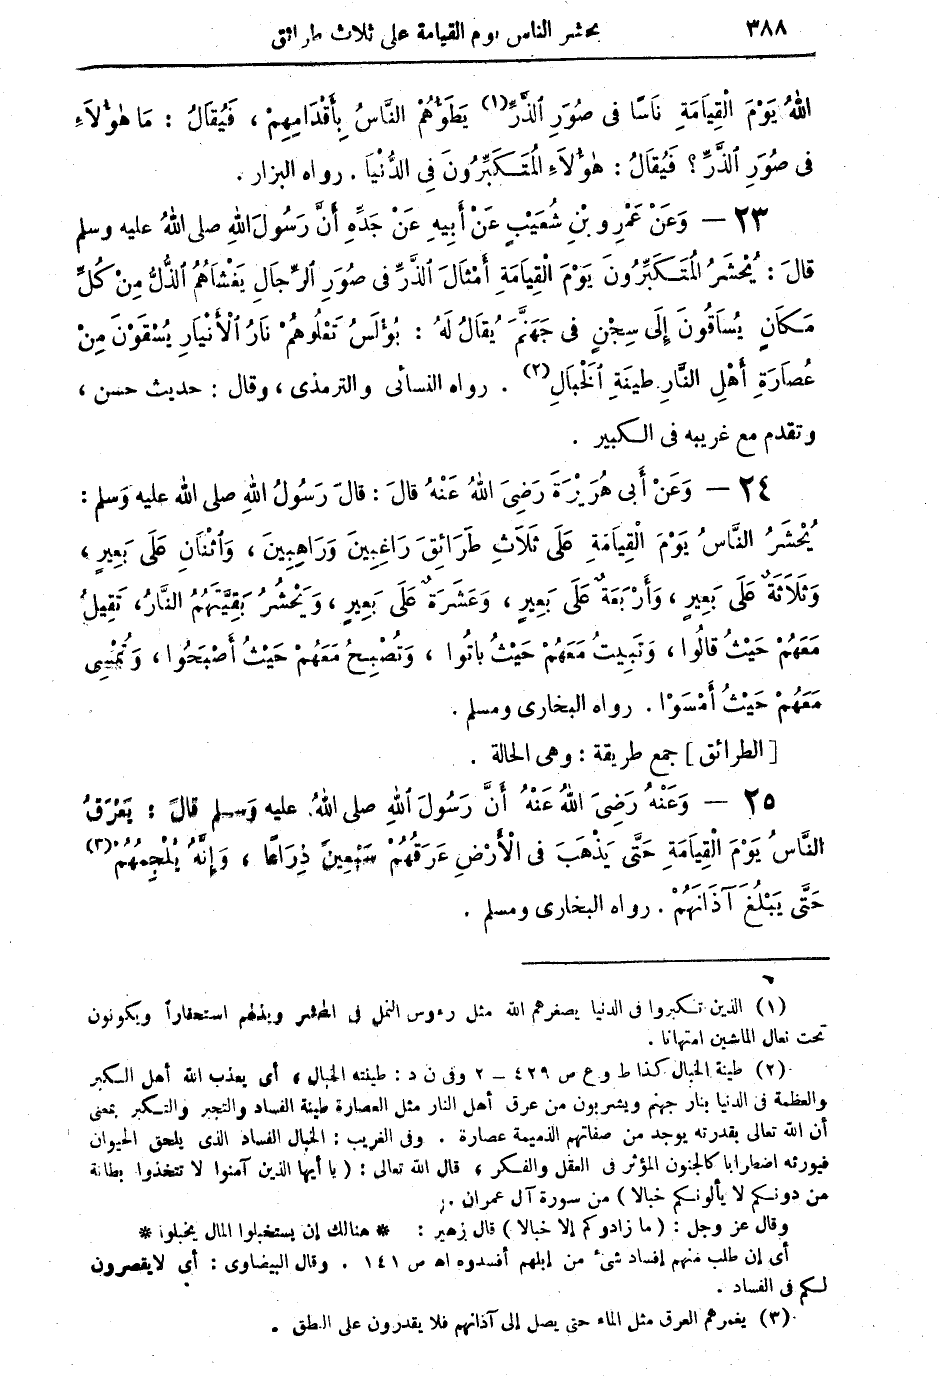 ٣٨٨ يحشر الناس يوم القيامة على ثلاث طرائق
اللهُ يَوْمَ الْقِيَامَةِ نَاسًا فى صُوَرِ الذَّرِّ(١) يَطَؤُهُمُ النَّاسُ بِأَقْدَامِهِمْ ، فَيُقَالُ : مَا هٰؤُلَاءِ
فى صُوَرِ الذَّرِّ ؟ فَيُقَالُ : هٰؤُلَاءِ الْمُتَكَبِّرُونَ فِى الدُّنْيَا . رواه البزار .
٢٣ — وَعَنْ عَمْرِو بْنِ شُعَيْبٍ عَنْ أَبِيهِ عَنْ جَدِّهِ أَنَّ رَسُولَ اللهِ صلى اللهُ عليه وسلم
قالَ : يُحْشَرُ الْمُتَكَبِّرُونَ يَوْمَ الْقِيَامَةِ أَمْثَالَ الذَّرِّ فى صُوَرِ الرِّجَالِ يَغْشَاهُمُ الذُّلُّ مِنْ كُلِّ
مَكَانٍ يُسَاقُونَ إِلَى سِجْنٍ فى جَهَنَّمَ يُقَالُ لَهُ : بُولَسُ تَعْلُوهُمْ نَارُ الْأَنْيَارِ يُسْقَوْنَ مِنْ
عُصَارَةِ أَهْلِ النَّارِ طِينَةِ الْخَبَالِ(٢) . رواه النسائى والترمذى ، وقال : حديث حسن ،
وتقدم مع غريبه فى الكبير .
٢٤ — وَعَنْ أَبِى هُرَيْرَةَ رَضِىَ اللهُ عَنْهُ قالَ : قالَ رَسُولُ اللهِ صلى الله عليه وَسلم :
يُحْشَرُ النَّاسُ يَوْمَ الْقِيَامَةِ عَلَى ثَلَاثِ طَرَائِقَ رَاغِبِينَ وَرَاهِبِينَ ، وَاثْنَانِ عَلَى بَعِيرٍ ،
وَثَلَاثَةٌ عَلَى بَعِيرٍ ، وَأَرْبَعَةٌ عَلَى بَعِيرٍ ، وَعَشَرَةٌ عَلَى بَعِيرٍ ، وَيَحْشُرُ بَقِيَّتَهُمُ النَّارُ ، تَقِيلُ
مَعَهُمْ حَيْثُ قالُوا ، وَتَبِيتُ مَعَهُمْ حَيْثُ باتُوا ، وَتُصْبِحُ مَعَهُمْ حَيْثُ أَصْبَحُوا ، وَتُمْسِى
مَعَهُمْ حَيْثُ أَمْسَوْا . رواه البخارى ومسلم .
[ الطرائق ] جمع طريقة : وهى الحالة .
٢٥ — وَعَنْهُ رَضِىَ اللهُ عَنْهُ أَنَّ رَسُولَ اللهِ صلى اللهُ عليه وَسلم قالَ : يَعْرَقُ
النَّاسُ يَوْمَ الْقِيَامَةِ حَتَّى يَذْهَبَ فى الْأَرْضِ عَرَقُهُمْ سَبْعِينَ ذِرَاعًا ، وَإِنَّهُ يُلْجِمُهُمْ(٣)
حَتَّى يَبْلُغَ آذَانَهُمْ . رواه البخارى ومسلم .
(١) الذين تكبروا فى الدنيا يصغرهم الله مثل رءوس النمل فى المحشر ويذلهم استحقاراً ويكونون
تحت نعال الماشين امتهانا .
(٢) طينة الخبال كذا ط وع ص ٤٢٩ – ٢ وفى ن د : طينته الخبال ، أى يعذب الله أهل الكبر
والعظمة فى الدنيا بنار جهنم ويشربون من عرق أهل النار مثل العصارة طينة الفساد والتجبر والتكبر بمعنى
أن الله تعالى بقدرته يوجد من صفاتهم الذميمة عصارة . وفى الغريب : الخبال الفساد الذى يلحق الحيوان
فيورثه اضطرابا كالجنون المؤثر فى العقل والفكر ، قال الله تعالى : ( يا أيها الذين آمنوا لا تتخذوا بطانة
من دونكم لا يألونكم خبالا ) من سورة آل عمران .
وقال عز وجل : ( ما زادوكم إلا خبالا ) قال زهير : * هنالك إن يستخبلوا المال يخبلوا *
أى إن طلب منهم إفساد شىء من إبلهم أفسدوه اهـ ص ١٤١ . وقال البيضاوى : أى لايقصرون
لكم فى الفساد .
(٣) يغمرهم العرق مثل الماء حتى يصل إلى آذانهم فلا يقدرون على النطق .